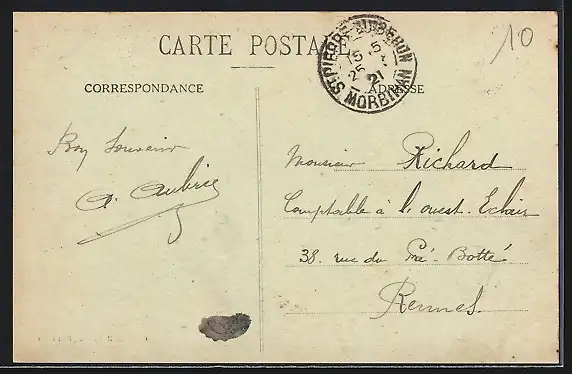 10
CARTE POSTALE
ST PIERRE-QUIBERON
15 5
25
21
MORBIHAN
CORRESPONDANCE
ADRESSE
Bon Souvenir
A. Aubrée
Monsieur Richard
Comptable à l'ouest-Eclair
38. rue du Pré-Botté
Rennes.